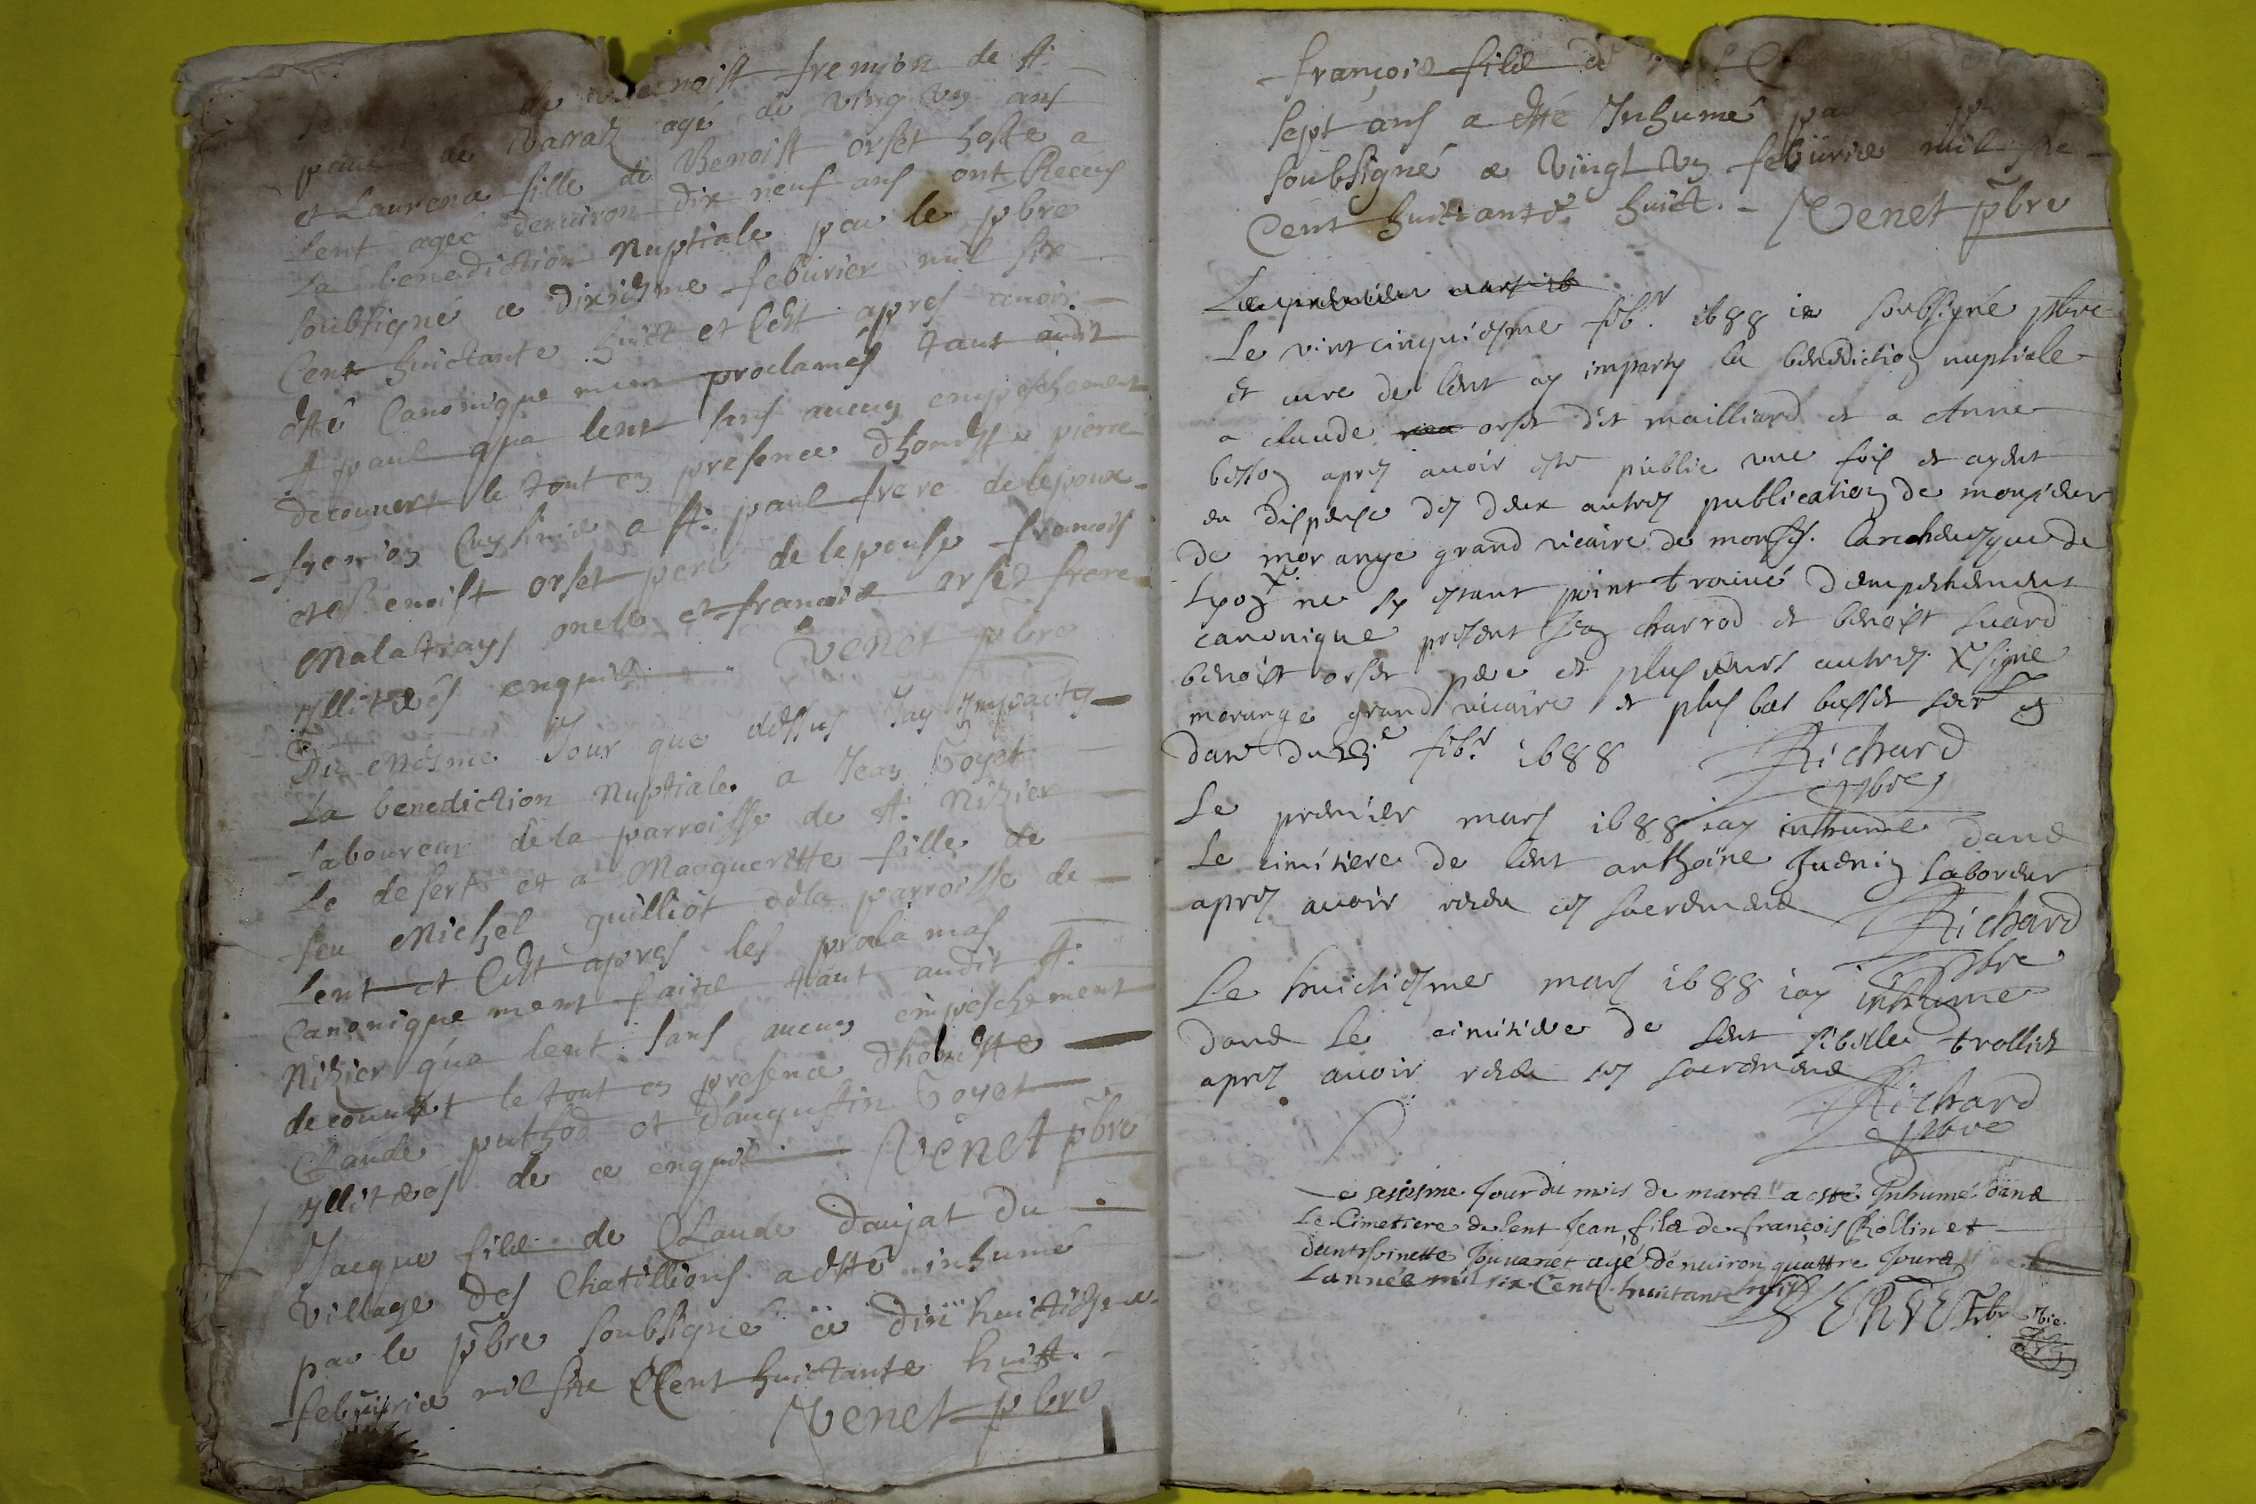 de Benoist fremion de st.
paul de Varax agé de Vingt Un ans
et Laurence fille de Benoist orset hoste a
Lent agée denviron dix neuf ans ont Receus
La benediction Nuptiale par le pbre
soubsigné ce dixiesme febvrier mil six
Cent huictante huict et C'est apres avoir
esté Canoniquement proclamés tant audit
st paul qu'a lent sans aucun empeschement
decouvert le tout en presence d'honeste pierre
fremion a st. paul frere de lepoux
et Benoist orset pere de lepouse francois
Malatrays oncle et francois orset frere
yllitrés enquis. Venet pbre
Du mesme Jour que dessus J'ay Imparty
La benediction Nuptiale a Jean Goyet
Laboureur de la parroisse de st. Nizier
Le desert et a Margueritte fille de
feu Michel guilliot de la parroisse de
Lent et C'est apres les proclamas
Canoniquement faits tant audit st.
Nizier qu'a lent sans aucun empeschement
decouvert le tout en presence d'honeste
Claude puthod et d'augustin Goyet
yllitrés de ce enquis Venet pbre
Jacque fils de Claude Daujat du
Village des Chatillions a esté inhumé
par le pbre soubsigné ce dix huictiesme
febvrier mil six Cent huictante huict.
Venet pbre
françois fils de
sept ans a esté Inhumé par
soubsigné ce Vingt Un febvrier mil six
Cent huictante huict. Venet pbre
Le premier mars 16
Le vint cinquiesme feb.r 1688 ie soubsigné pbre
et curé de lent ay imparty la benediction nuptiale
a claude orset dit mailliard et a Anne
besson apres avoir esté publié une fois et ayant
eu dispense des deux autres publication de monsieur
de morange grand vicaire de monsgr. l'archevesque de
Lyon ne sy estant point trouvé d'empeschement
canonique present Jean charrod et benoist suard
benoist orset pere et plusieurs autres signé
morange grand vicaire et plus bas basset secr en
date du feb.r 1688 Richard
pbre
Le premier mars 1688 iay inhumé dans
Le cimitiere de lent anthoine Juenin Laboreur
apres avoir receu ces sacrements Richard
pbre
Le huictiesme mars 1688 iay inhumé
dans le cimitiere de lent sibille trolliet
apres avoir receu ses sacrements
Richard
pbre
Le sesiesme Jour du mois de mars a esté Inhumé dans
Le Cimetiere de lent Jean fils de françois Rollin et
d'anthoinette Jouvaret agé d'environ quattre Jours
L'année mil six Cent huictante huict
SERVE Pbr Vic.